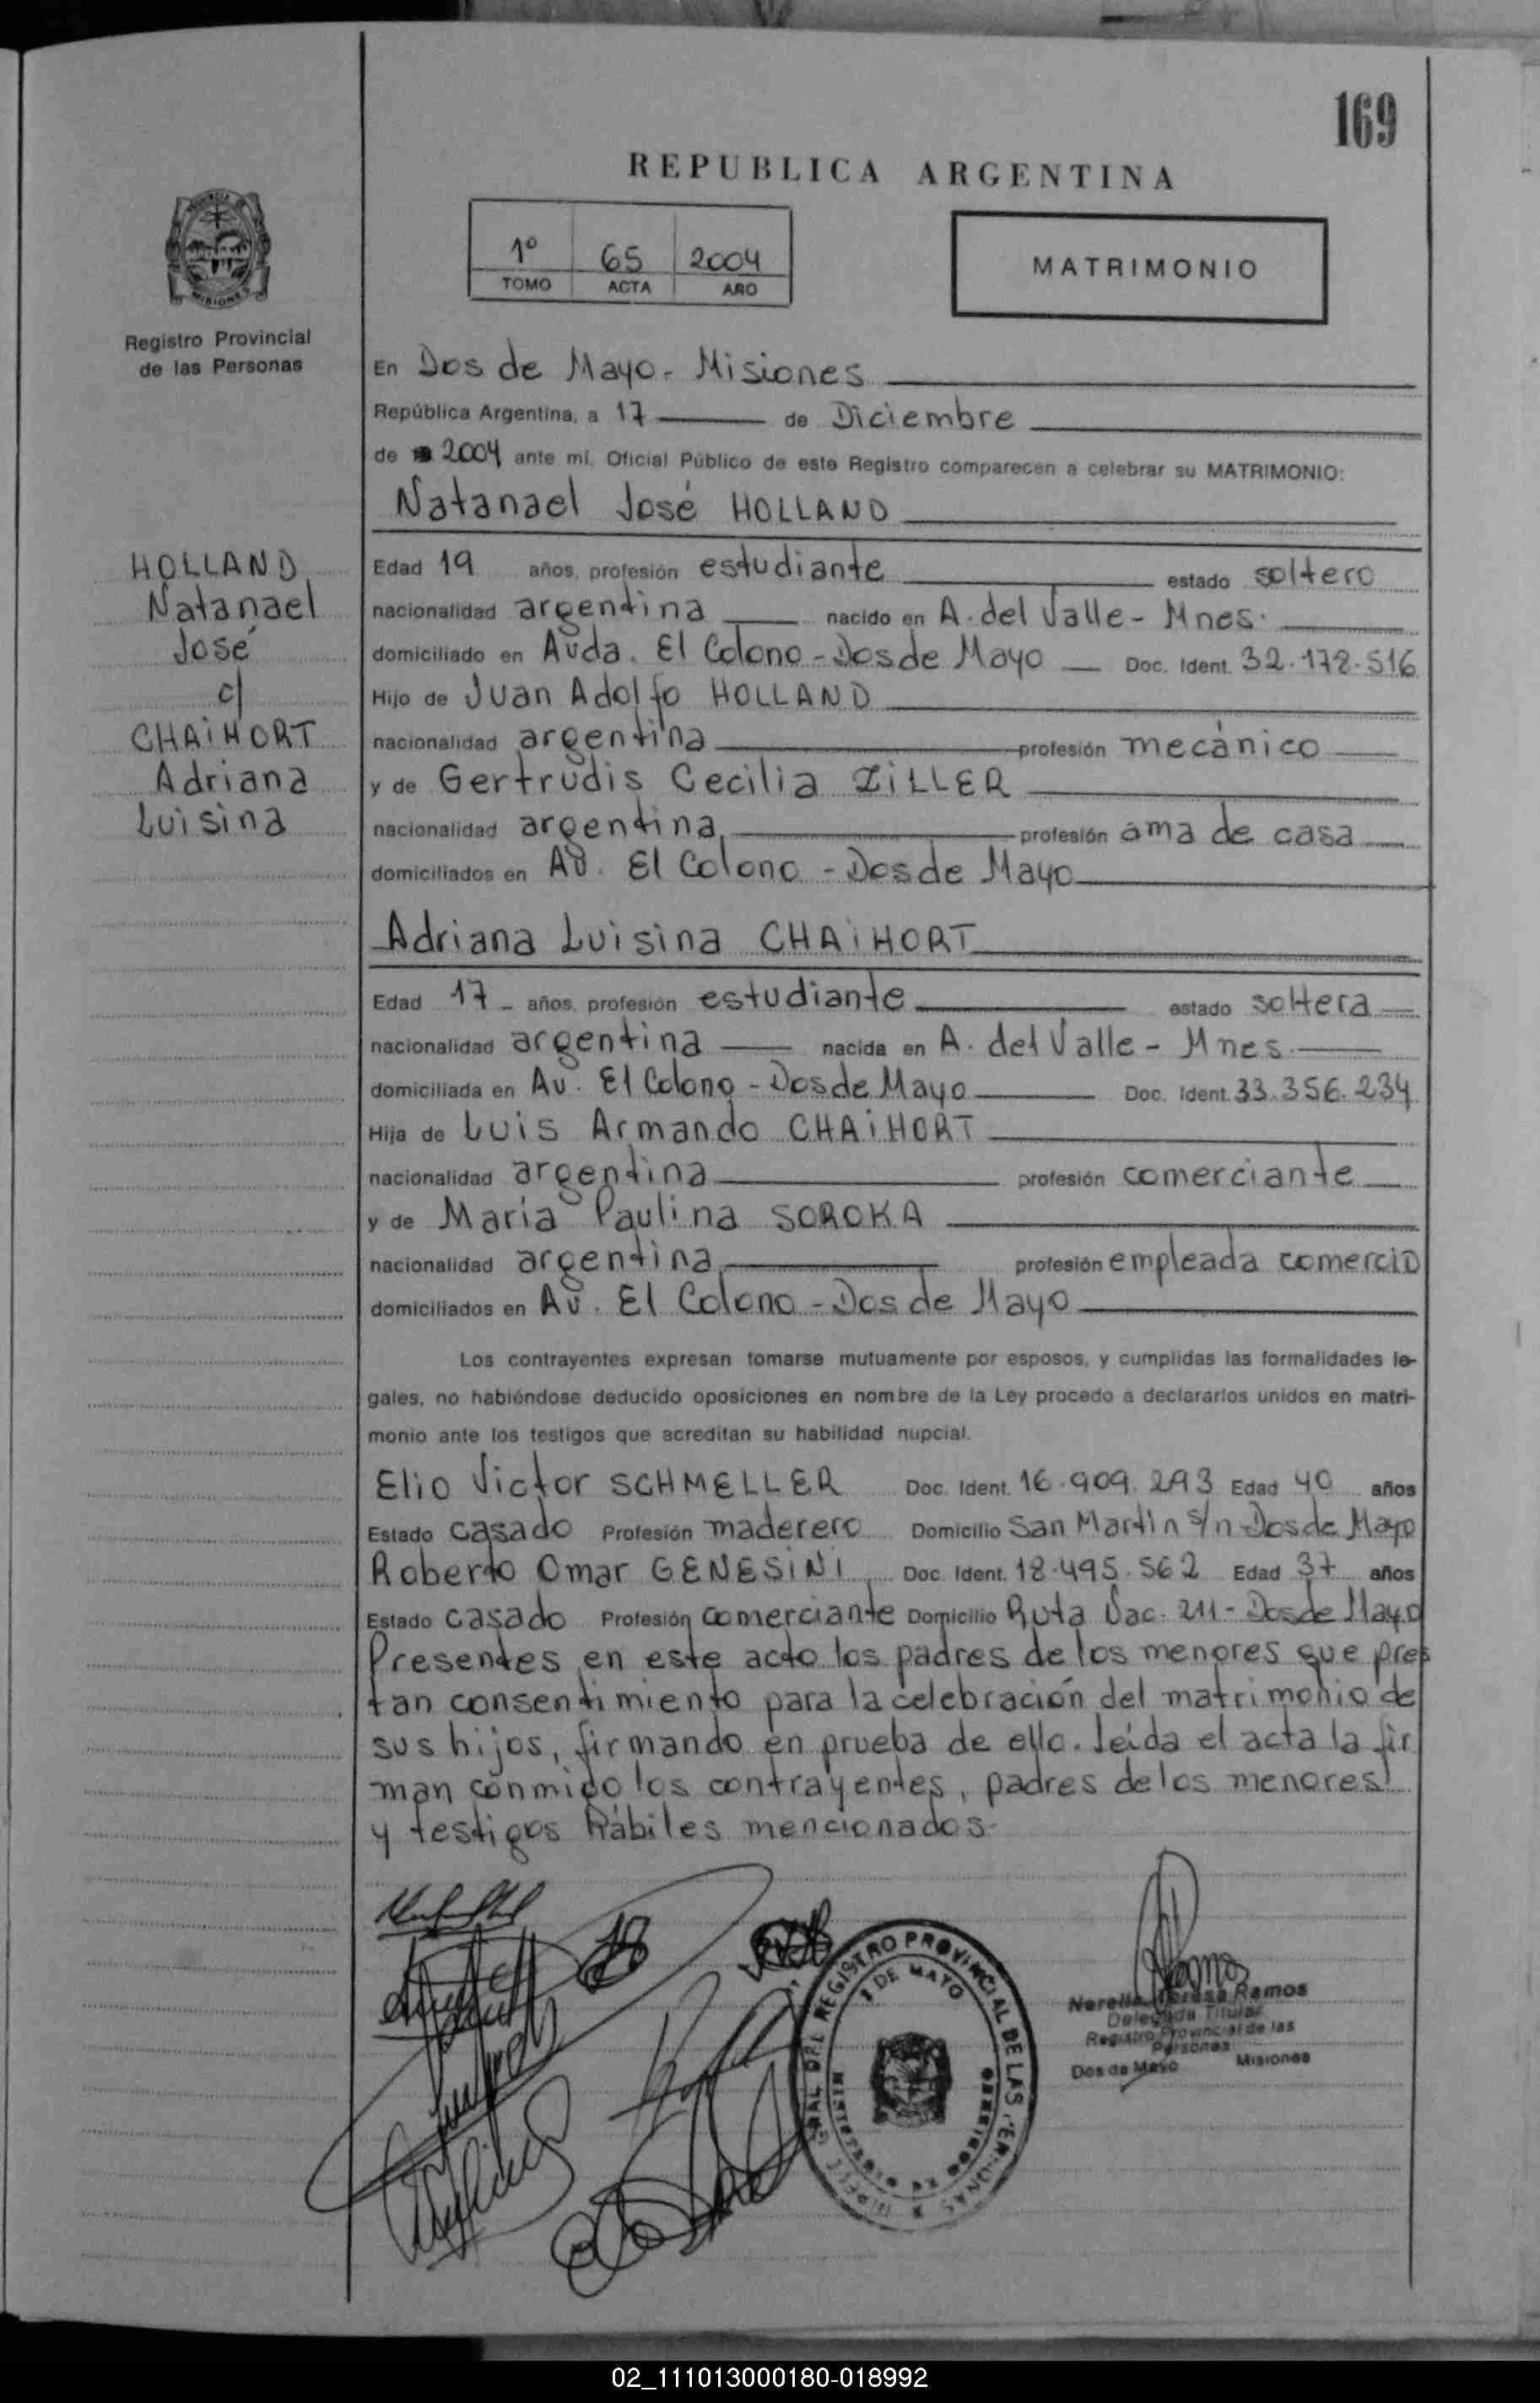 169
REPUBLICA ARGENTINA
1º 65 2004
TOMO ACTA AÑO
MATRIMONIO
Registro Provincial
de las Personas
HOLLAND
Natanael
José
c/
CHAiHORT
Adriana
Luisina
En Dos de Mayo - Misiones
República Argentina, a 17 de Diciembre
de 2004 ante mí, Oficial Público de este Registro comparecen a celebrar su MATRIMONIO:
Natanael José HOLLAND
Edad 19 años, profesión estudiante estado soltero
nacionalidad argentina nacido en A. del Valle - Mnes.
domiciliado en Avda. El Colono - Dos de Mayo Doc. Ident. 32.178.516
Hijo de Juan Adolfo HOLLAND
nacionalidad argentina profesión mecánico
y de Gertrudis Cecilia ZiLLER
nacionalidad argentina profesión ama de casa
domiciliados en Av. El Colono - Dos de Mayo
Adriana Luisina CHAiHORT
Edad 17 - años, profesión estudiante estado soltera
nacionalidad argentina nacida en A. del Valle - Mnes.
domiciliada en Av. El Colono - Dos de Mayo Doc. Ident. 33.356.234
Hija de Luis Armando CHAiHORT
nacionalidad argentina profesión comerciante
y de Maria Paulina SOROKA
nacionalidad argentina profesión empleada comercio
domiciliados en Av. El Colono - Dos de Mayo
Los contrayentes expresan tomarse mutuamente por esposos, y cumplidas las formalidades le-
gales, no habiéndose deducido oposiciones en nombre de la Ley procedo a declararlos unidos en matri-
monio ante los testigos que acreditan su habilidad nupcial.
Elio Victor SCHMELLER Doc. Ident. 16.909.293 Edad 40 años
Estado casado Profesión maderero Domicilio San Martin s/n Dos de Mayo
Roberto Omar GENESiNi Doc. Ident. 18.495.562 Edad 37 años
Estado casado Profesión comerciante Domicilio Ruta Nac. 211 - Dos de Mayo
Presentes en este acto los padres de los menores que pres
tan consentimiento para la celebración del matrimonio de
sus hijos, firmando en prueba de ello. leída el acta la fir
man conmigo los contrayentes, padres de los menores
y testigos hábiles mencionados.
REGISTRO PROVINCIAL DE LAS PERSONAS
DE MAYO
Teresa Ramos
Delegada Titular
Registro Provincial de las
Personas
Dos de Mayo Misiones
02_111013000180-018992